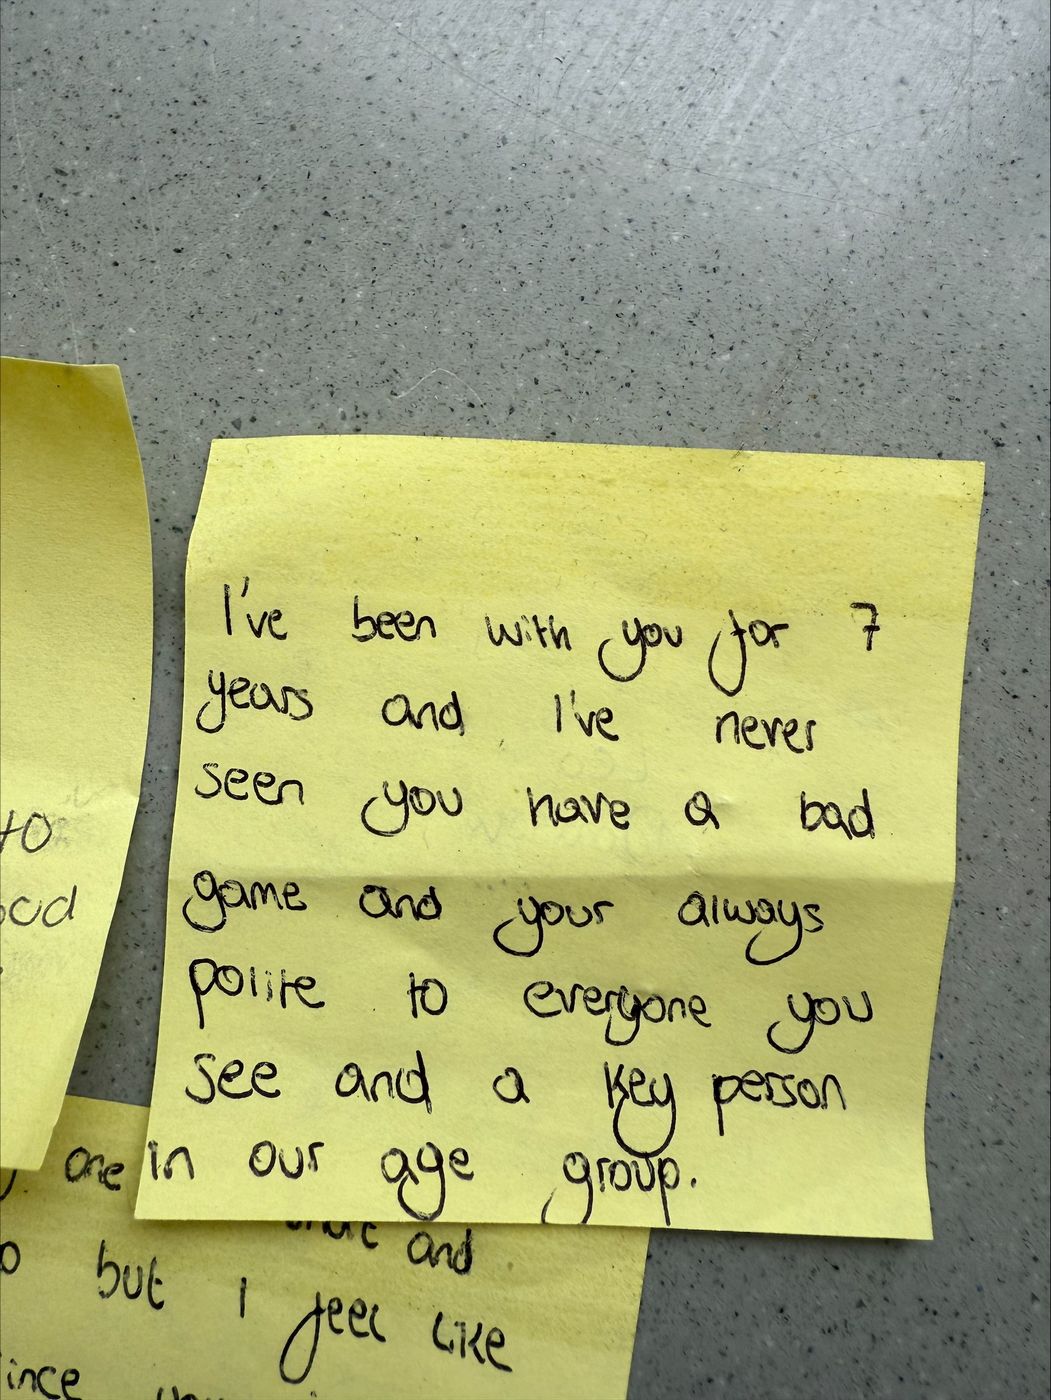 I've been with you for 7
years and I've never
seen you have a bad
game and your always
polite to everyone you
see and a key person
in our age group.
to
one
and
but I feel like